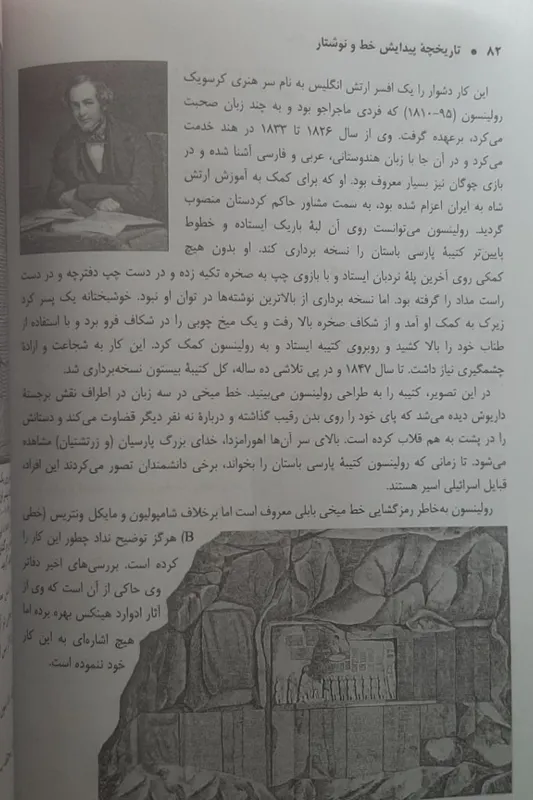 ۸۲ • تاریخچهٔ پیدایش خط و نوشتار
این کار دشوار را یک افسر ارتش انگلیس به نام سر هنری کرسویک
رولینسون (۹۵–۱۸۱۰) که فردی ماجراجو بود و به چند زبان صحبت
می‌کرد، برعهده گرفت. وی از سال ۱۸۲۶ تا ۱۸۳۳ در هند خدمت
می‌کرد و در آن جا با زبان هندوستانی، عربی و فارسی آشنا شده و در
بازی چوگان نیز بسیار معروف بود. او که برای کمک به آموزش ارتش
شاه به ایران اعزام شده بود، به سمت مشاور حاکم کردستان منصوب
گردید. رولینسون می‌توانست روی آن لبهٔ باریک ایستاده و خطوط
پایین‌تر کتیبهٔ پارسی باستان را نسخه برداری کند. او بدون هیچ
کمکی روی آخرین پلهٔ نردبان ایستاد و با بازوی چپ به صخره تکیه زده و در دست چپ دفترچه و در دست
راست مداد را گرفته بود. اما نسخه برداری از بالاترین نوشته‌ها در توان او نبود. خوشبختانه یک پسر کرد
زیرک به کمک او آمد و از شکاف صخره بالا رفت و یک میخ چوبی را در شکاف فرو برد و با استفاده از
طناب خود را بالا کشید و روبروی کتیبه ایستاد و به رولینسون کمک کرد. این کار به شجاعت و ارادهٔ
چشمگیری نیاز داشت. تا سال ۱۸۴۷ و در پی تلاشی ده ساله، کل کتیبهٔ بیستون نسخه‌برداری شد.
در این تصویر، کتیبه را به طراحی رولینسون می‌بینید. خط میخی در سه زبان در اطراف نقش برجستهٔ
داریوش دیده می‌شد که پای خود را روی بدن رقیب گذاشته و دربارهٔ نه نفر دیگر قضاوت می‌کند و دستانش
را در پشت به هم قلاب کرده است. بالای سر آن‌ها اهورامزدا، خدای بزرگ پارسیان (و زرتشتیان) مشاهده
می‌شود. تا زمانی که رولینسون کتیبهٔ پارسی باستان را بخواند، برخی دانشمندان تصور می‌کردند این افراد،
قبایل اسرائیلی اسیر هستند.
رولینسون به‌خاطر رمزگشایی خط میخی بابلی معروف است اما برخلاف شامپولیون و مایکل ونتریس (خطی
B) هرگز توضیح نداد چطور این کار را
کرده است. بررسی‌های اخیر دفاتر
وی حاکی از آن است که وی از
آثار ادوارد هینکس بهره برده اما
هیچ اشاره‌ای به این کار
خود ننموده است.